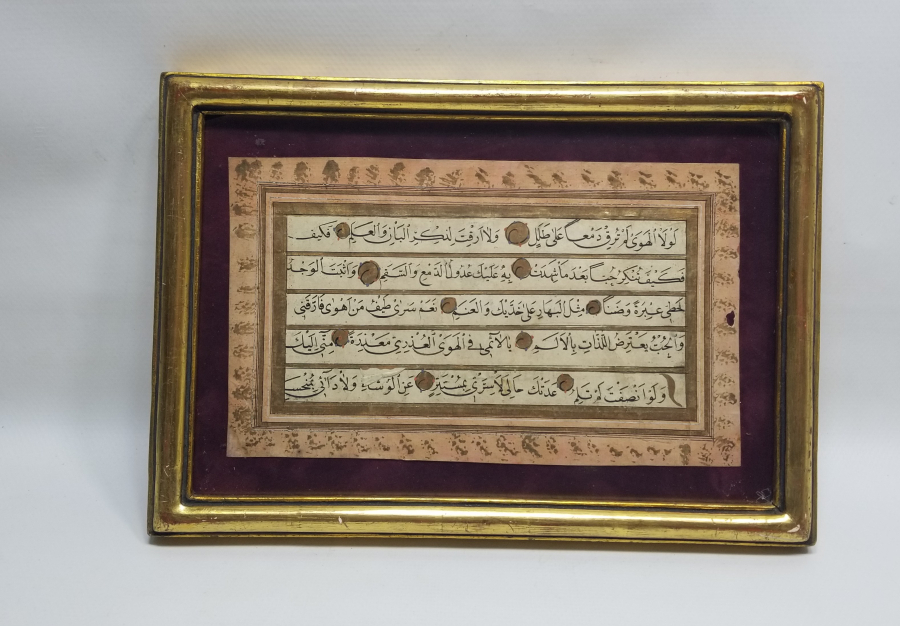 لَوْلَا الْهَوَى لَمْ تُرِقْ دَمْعًا عَلَى طَلَلٍ وَلَا اَرِقْتَ لِذِكْرِ الْبَانِ وَالْعَلَمِ فكيف
فَكَيْفَ تُنْكِرُ حُبًّا بَعْدَ مَا شَهِدَتْ بِهِ عَلَيْكَ عُدُولُ الدَّمْعِ وَالسَّقَمِ وَاَثْبَتَ الْوَجْدُ
خَطَّيْ عَبْرَةٍ وَضَنًا مِثْلَ الْبَهَارِ عَلَى خَدَّيْكَ وَالْعَنَمِ نَعَمْ سَرٰى طَيْفُ مَنْ اَهْوٰى فَاَرَّقَنِي
وَالْحُبُّ يَعْتَرِضُ اللَّذَّاتِ بِالْاَلَمِ يَا لَائِمِي فِي الْهَوَى الْعُذْرِيِّ مَعْذِرَةً مِنِّي اِلَيْكَ
وَلَوْ اَنْصَفْتَ لَمْ تَلُمِ عَدَتْكَ حَالِي لَا سِرِّي بِمُسْتَتِرٍ عَنِ الْوُشَاةِ وَلَا دَائِي بِمُنْحَسِمِ